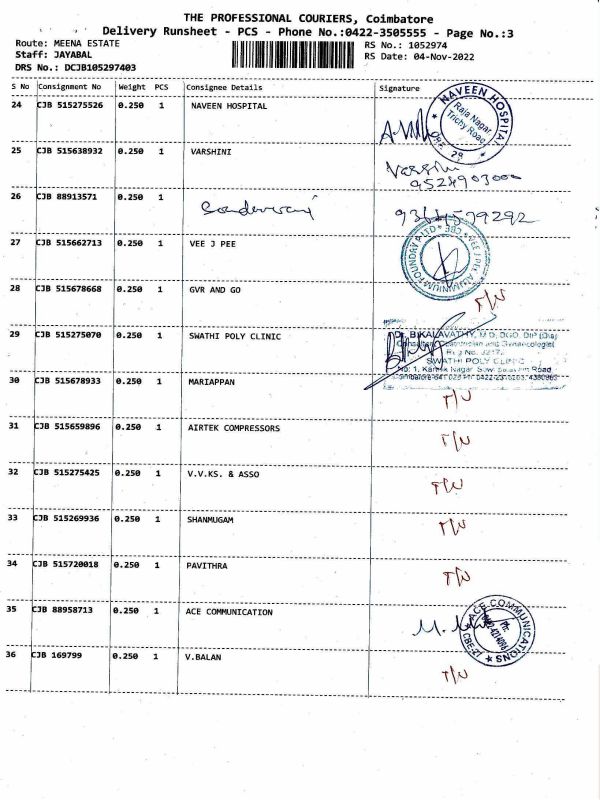 THE PROFESSIONAL COURIERS, Coimbatore
Delivery Runsheet - PCS - Phone No.:0422-3505555 - Page No.:3
Route: MEENA ESTATE
Staff: JAYABAL
DRS No.: DCJB105297403
RS No.: 1052974
RS Date: 04-Nov-2022
S No Consignment No Weight PCS Consignee Details Signature
24 CJB 515275526 0.250 1 NAVEEN HOSPITAL
NAVEEN HOSPITAL
Raja Nagar
Trichy Road
25 CJB 515638932 0.250 1 VARSHINI
26 CJB 88913571 0.250 1
27 CJB 515662713 0.250 1 VEE J PEE
28 CJB 515678668 0.250 1 GVR AND GO T/N
29 CJB 515275070 0.250 1 SWATHI POLY CLINIC
Dr. B.KALAVATHY, M.D, DGO, DIP (Dia)
SWATHI POLY CLINIC
30 CJB 515678933 0.250 1 MARIAPPAN T/N
31 CJB 515659896 0.250 1 AIRTEK COMPRESSORS T/N
32 CJB 515275425 0.250 1 V.V.KS. & ASSO T/N
33 CJB 515269936 0.250 1 SHANMUGAM T/N
34 CJB 515720018 0.250 1 PAVITHRA T/N
35 CJB 88958713 0.250 1 ACE COMMUNICATION
ACE COMMUNICATIONS
36 CJB 169799 0.250 1 V.BALAN T/N